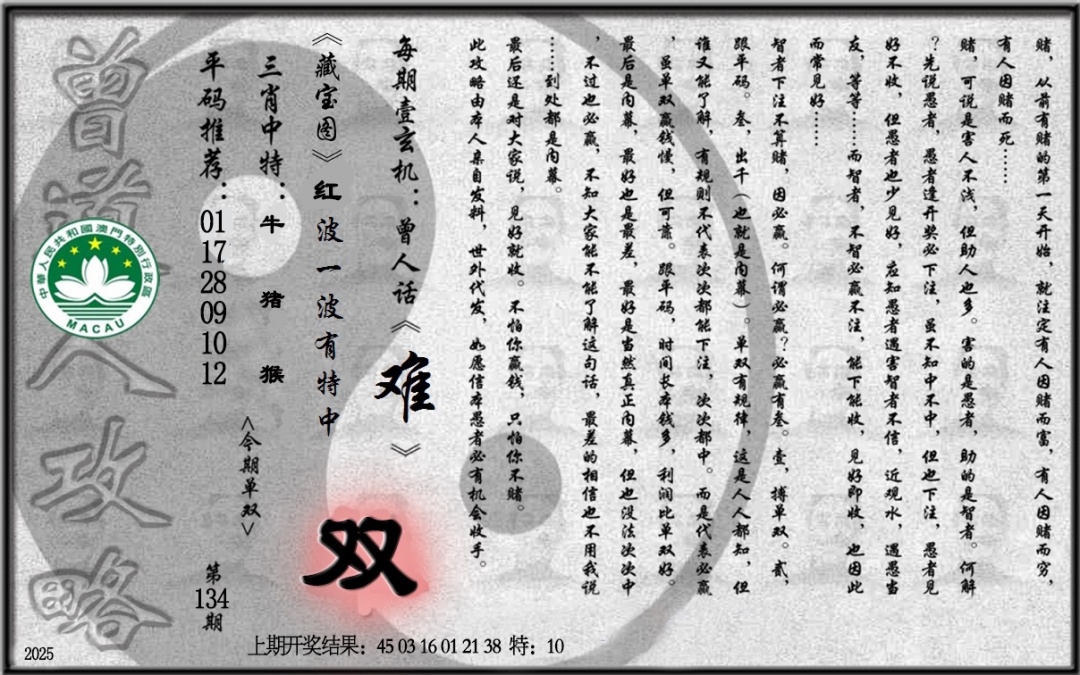 赌，从前有赌的第一天开始，就注定有人因赌而富，有人因赌而穷，
有人因赌而死……
赌，可说是害人不浅，但助人也多。害的是愚者，助的是智者。何解
？先说愚者，愚者逢开奖必下注，虽不知中不中，但也下注，愚者见
好不收，但愚者也少见好，应知愚者遇害智者不信，近观水，遇愚当
友，等等……而智者，不智必赢不注，能下能收，见好即收，也因此
而常见好……
智者下注不算赌，因必赢。何谓必赢？必赢有叁。壹，搏单双。贰，
跟平码。叁，出千（也就是内幕）。单双有规律，这是人人都知，但
谁又能了解，有规则不代表次次都能下注，次次都中。而是代表必赢
，虽单双赢钱慢，但可靠。跟平码，时间长本钱多，利润比单双好。
最后是内幕，最好也是最差，最好是当然真正内幕，但也没法次次中
，不过也必赢，不知大家能不能了解这句话，最差的相信也不用我说
……到处都是内幕。
最后还是对大家说，见好就收。不怕你赢钱，只怕你不赌。
此攻略由本人亲自发料，世外代发，如愿信本愚者必有机会收手。
每期壹玄机：曾人话《难》
《藏宝图》红波一波有特中
双
三肖中特：牛 猪 猴
<今期单双>
平码推荐：01 17 28 09 10 12
第134期
曾道人攻略
中華人民共和國澳門特別行政區
MACAU
2025
上期开奖结果：45 03 16 01 21 38 特：10